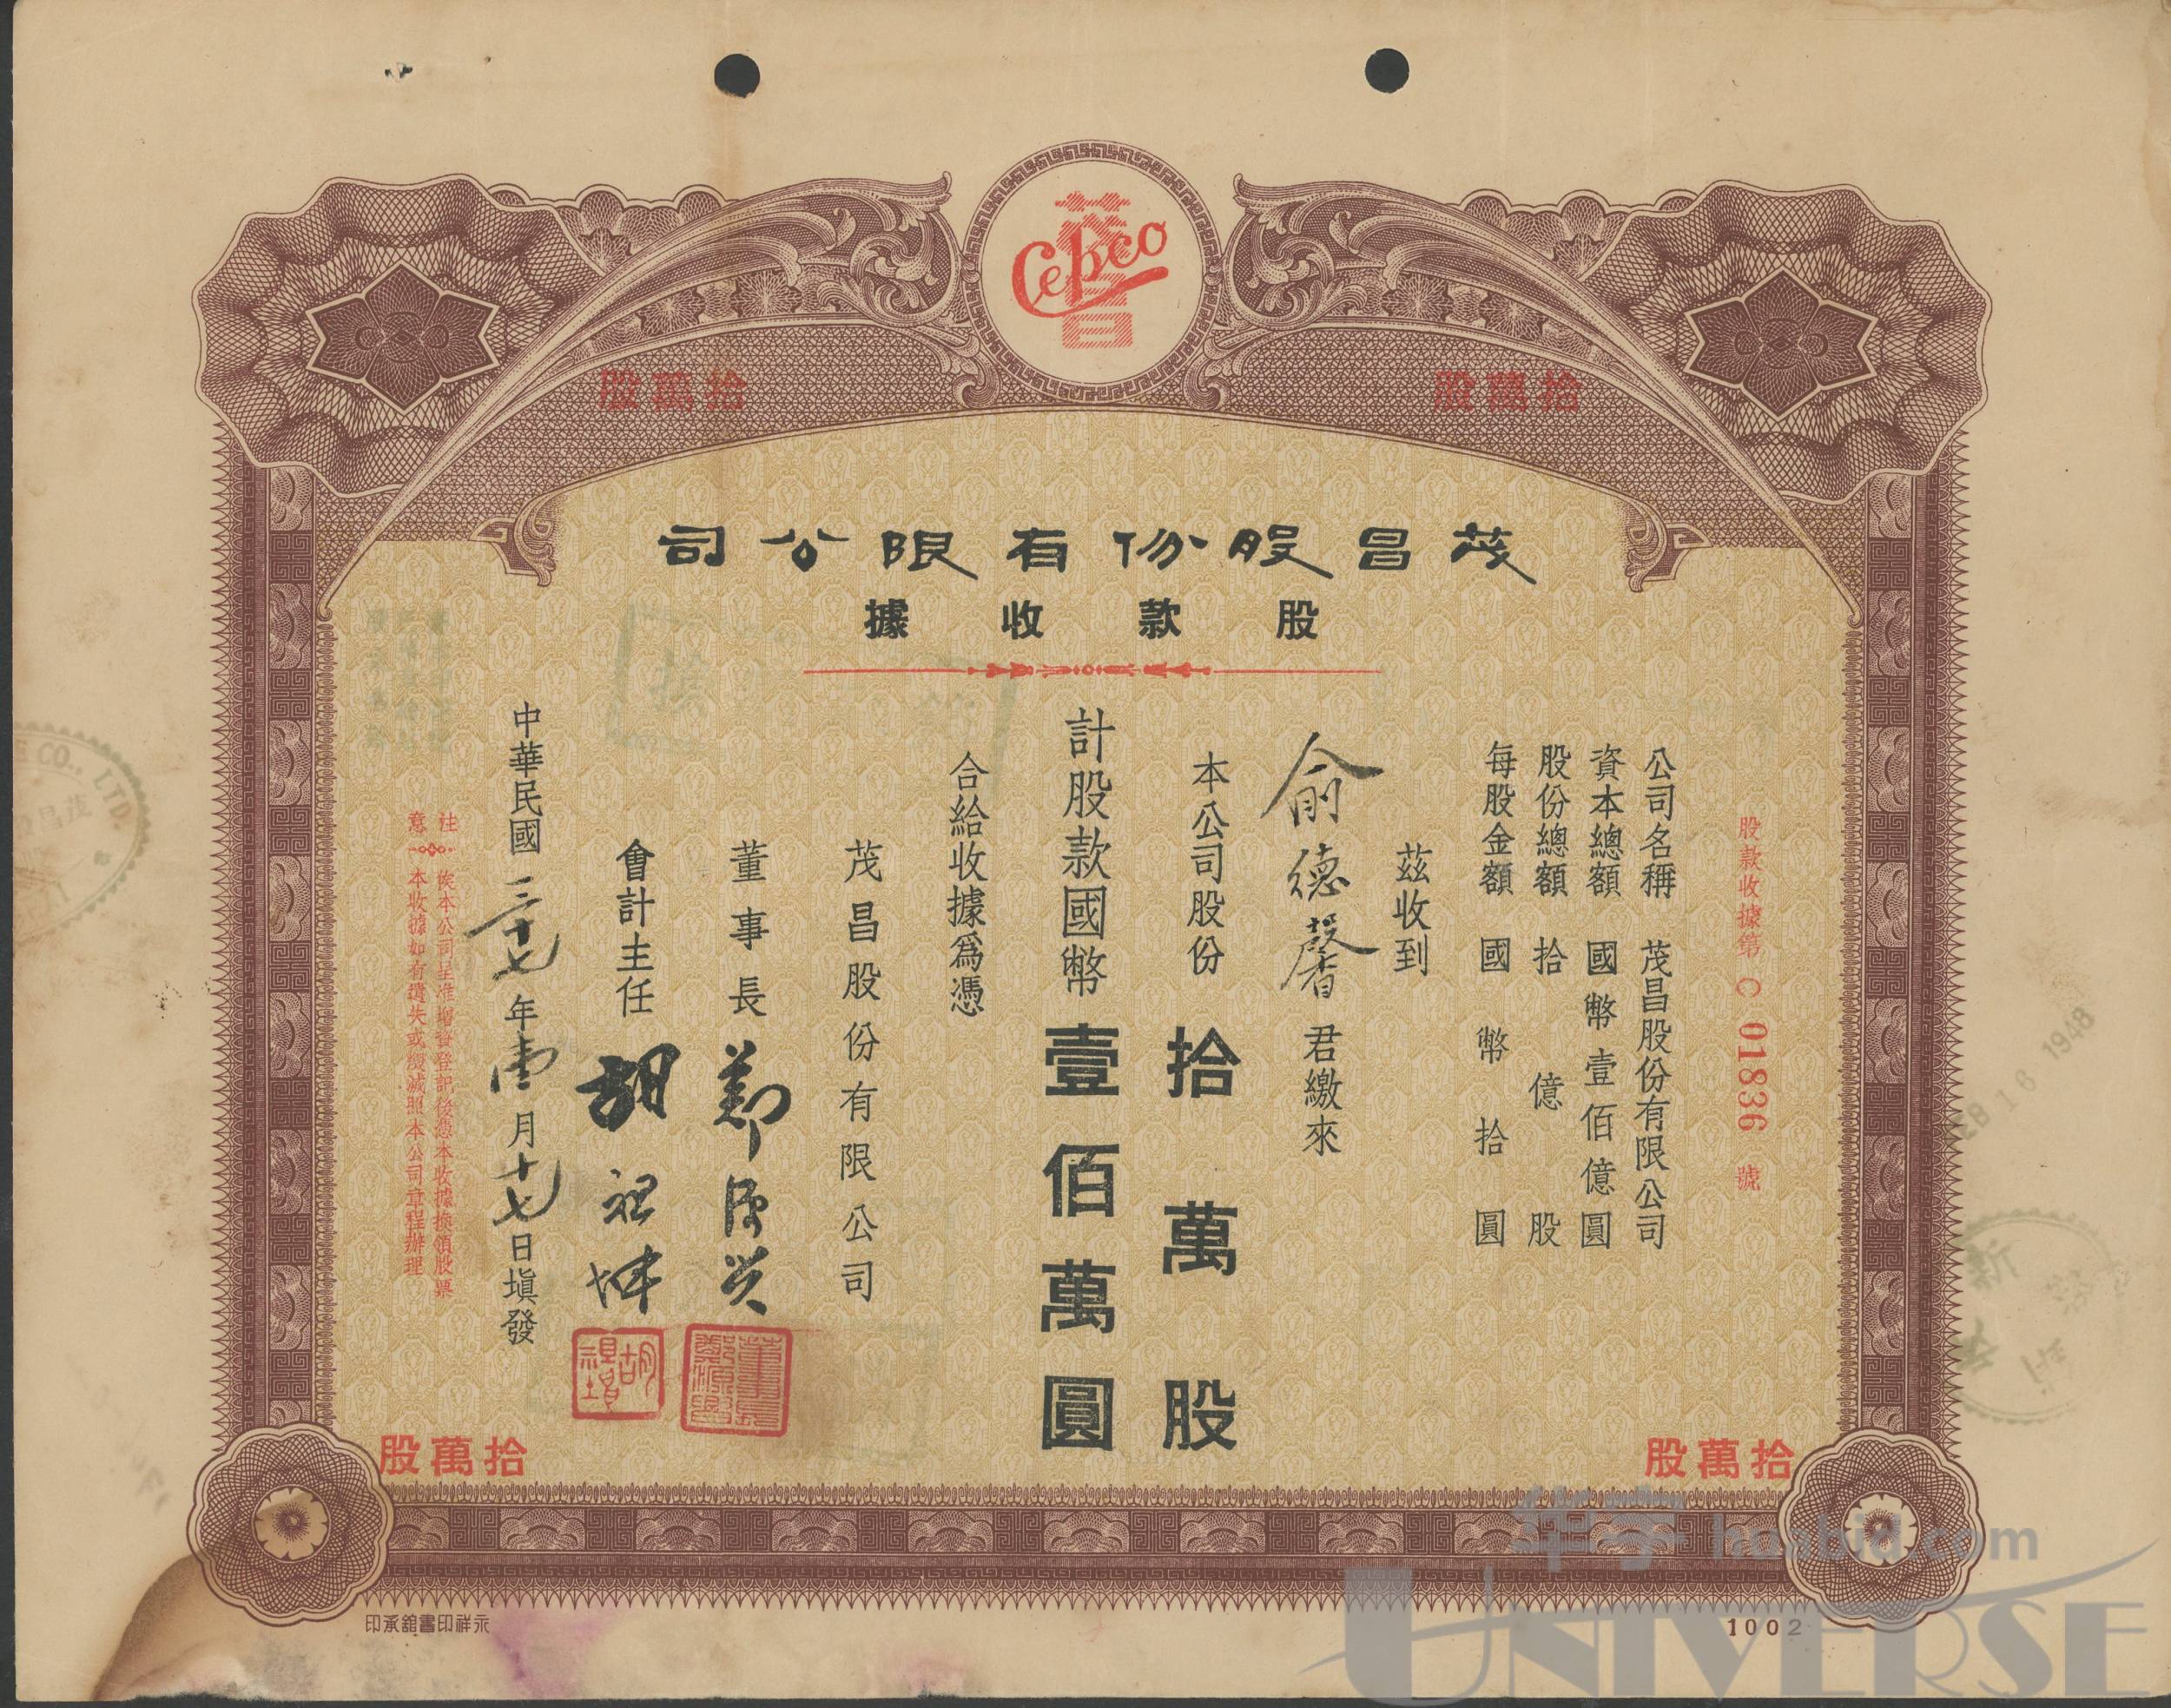 茂昌
Cepco
拾萬股
拾萬股
茂昌股份有限公司
股款收據
股款收據第 C 01836 號
公司名稱 茂昌股份有限公司
資本總額 國幣壹佰億圓
股份總額 拾億股
每股金額 國幣拾圓
茲收到
俞德馨 君繳來
本公司股份 拾萬股
計股款國幣 壹佰萬圓
合給收據爲憑
茂昌股份有限公司
董事長 鄭源興
董事長鄭源興
會計主任 胡祖坤
中華民國三十七年壹月十七日塡發
注意
俟本公司呈准增資登記後憑本收據換領股票
本收據如有遺失或毀滅照本公司章程辦理
拾萬股
拾萬股
永祥印書館承印
1002
CO., LTD.
茂昌
16 1948
新
华宇 huabid.com
UNIVERSE